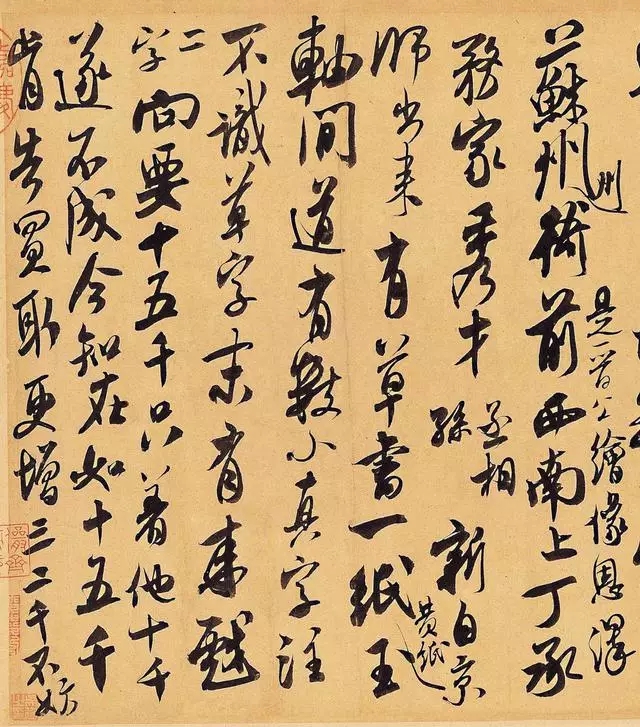 蘇州衙前西南上丁承
州
是晉公繪像恩澤
務家秀才
丞相
孫
新自京
師出来有草書一紙
黃紙
軸間道有數小真字注
不識草字末有来戲
二字向要十五千只著他十千
遂不成今知在如十五千
肯告買取更增三二千不妨